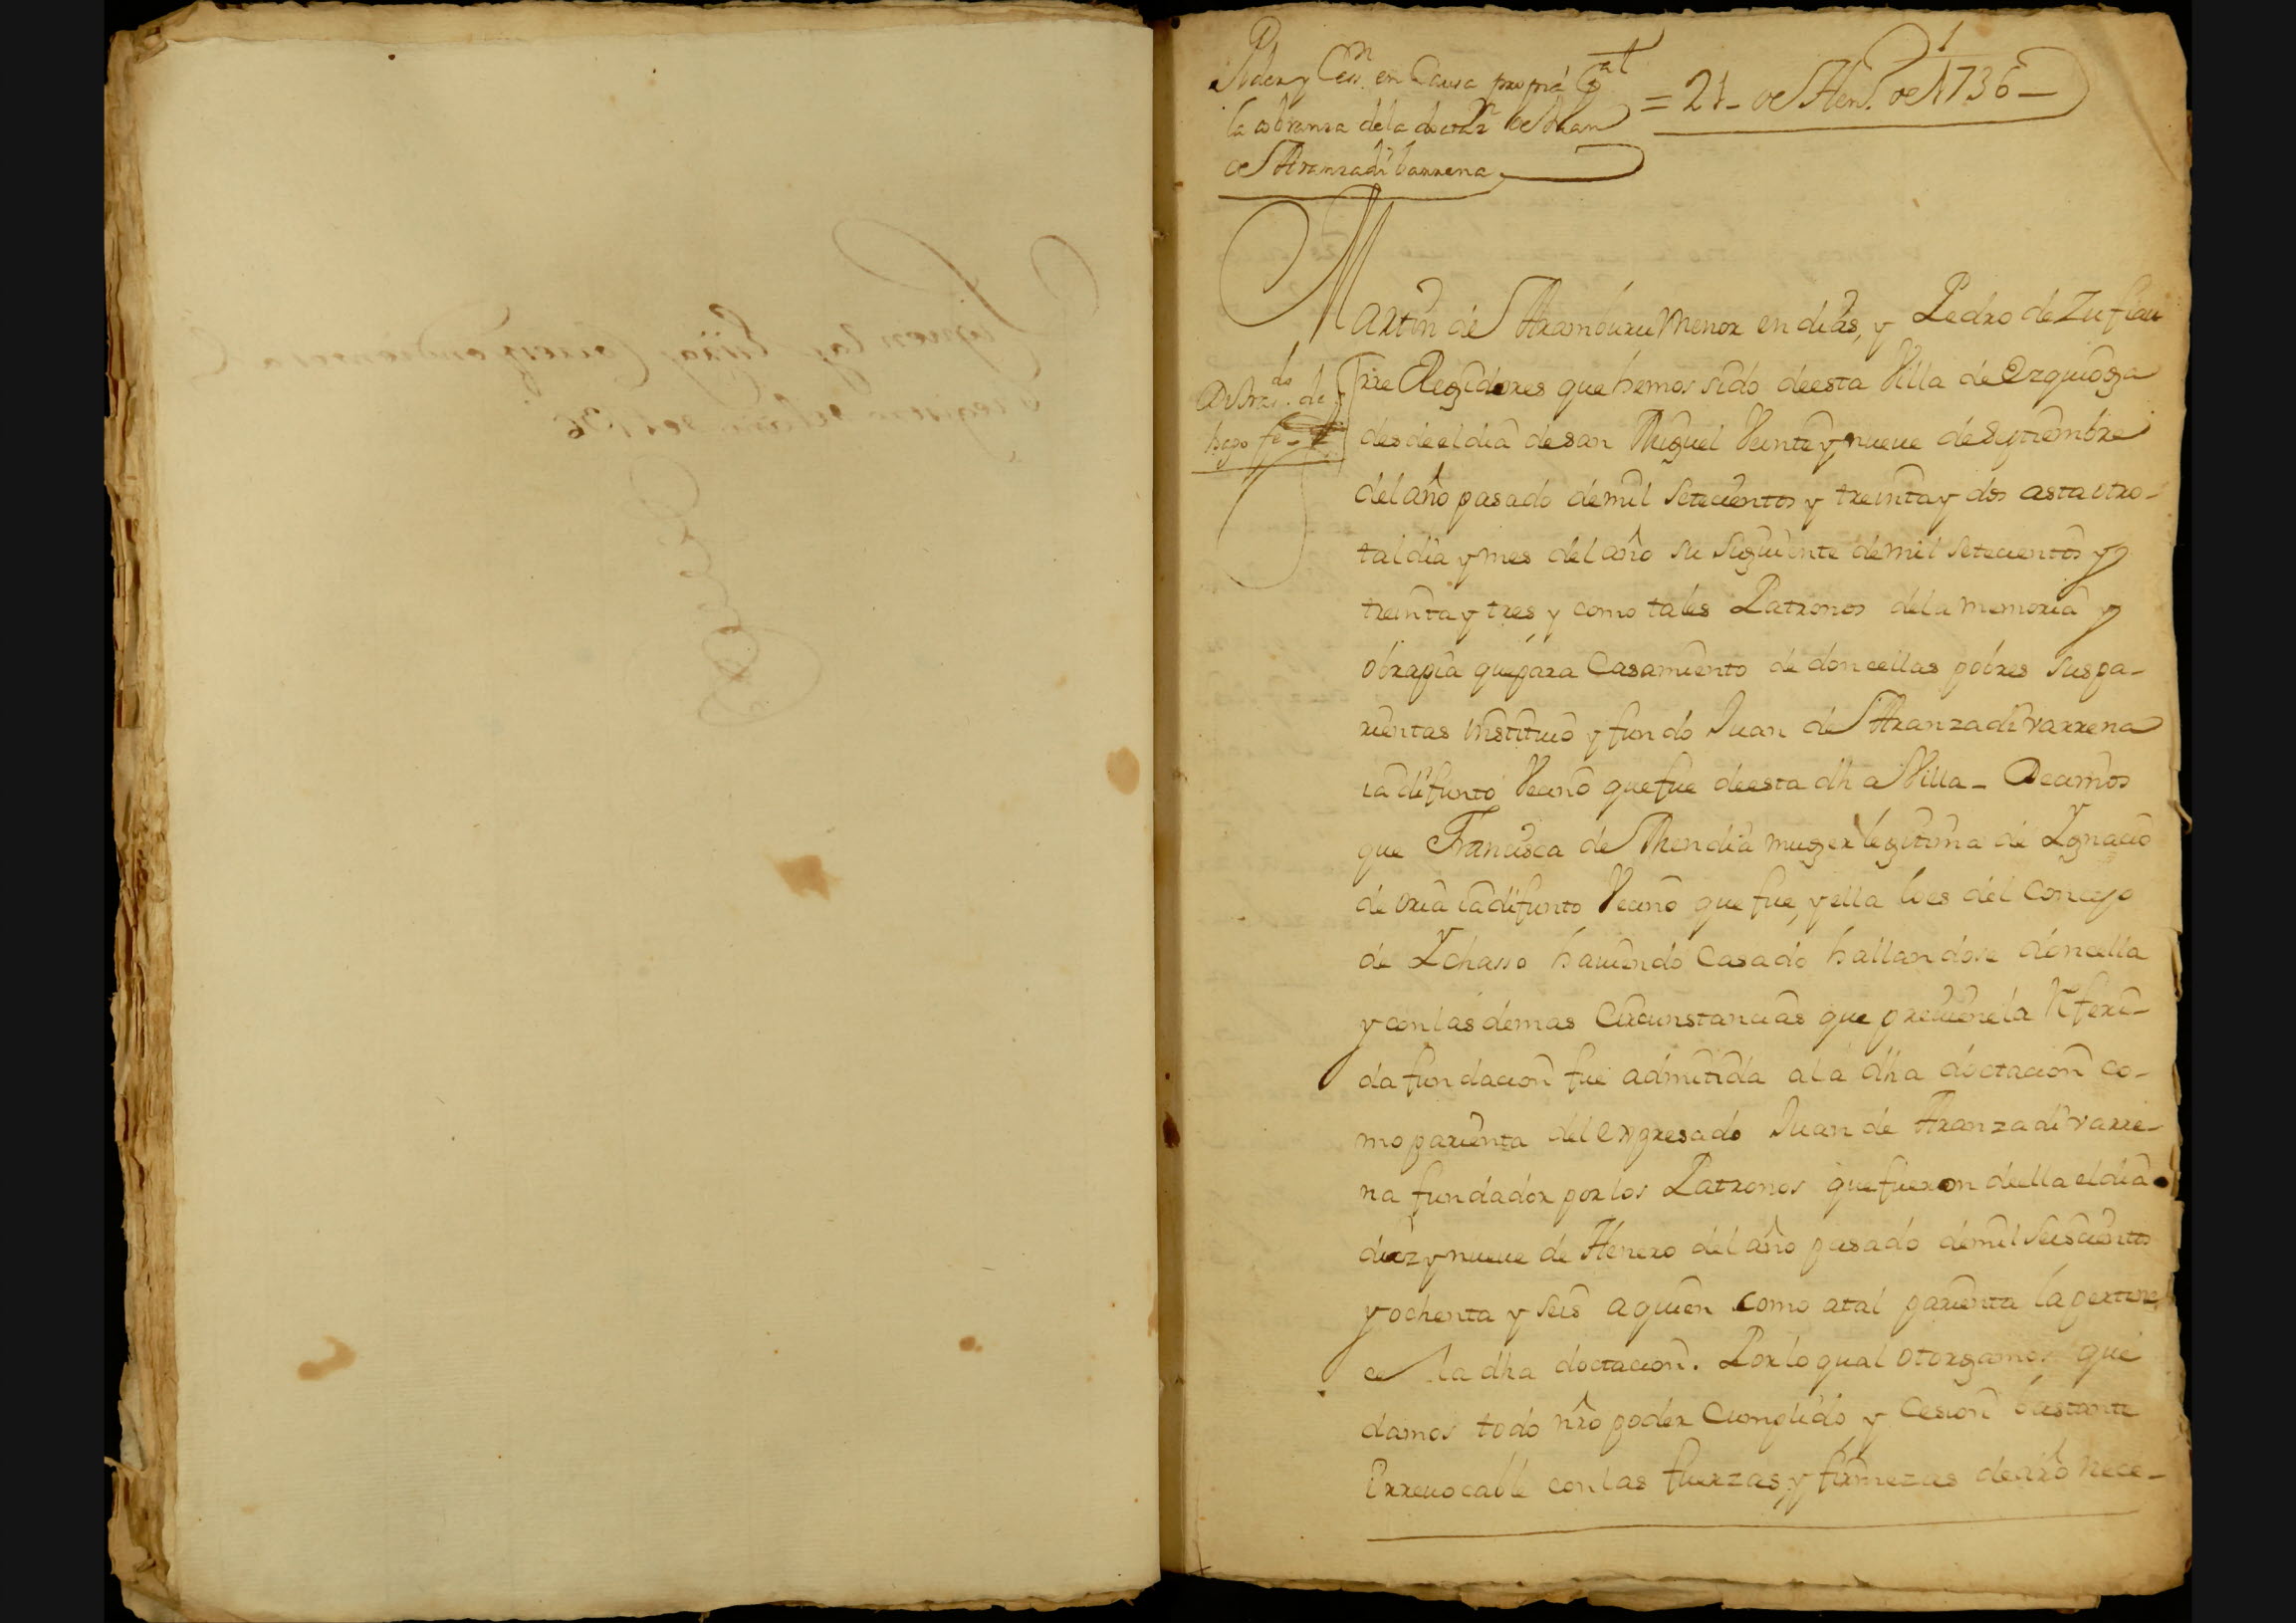 Poder y Cess.n en Causa propria Gral
la cobranza dela doctaz.n de Juan
de Aranzadi barrena
= 21 - de Hen.o de 1736 -
1
Martin de Aramburu menor en dias, y Pedro de Zufiau
rre Regidores que hemos sido deesta Villa de Ezquioga
desde el dia de san Miguel Veinte y nueve de Septiembre
del año pasado de mil setecientos y treinta y dos asta otro-
tal dia y mes del año su siguiente de mil setecientos y
treinta y tres y como tales Patronos dela memoria y
obrapia que para Casamiento de doncellas pobres sus pa-
rientas instituio y fundo Juan de Aranzadi varrena
ia difunto Vecino que fue deesta dha Villa - Decimos
que Francisca de Mendia muger legitima de Ygnacio
de oria ia difunto Vecino que fue, y ella loes del Concejo
de Ychasso haviendo Casado hallandose doncella
y con las demas Circunstancias que previene la Referi-
da fundacion fue admitida a la dha doctacion co-
mo parienta del expresado Juan de Aranzadi varre-
na fundador por los Patronos que fueron della el dia
diez y nueve de Henero del año pasado de mil seiscientos
y ochenta y seis a quien como atal parienta la pertene
ce la dha doctacion. Por lo qual otorgamos que
damos todo nro poder Cumplido y Cesion bastante
Irrevocable con las fuerzas y firmezas de dro nece-
de
hago fe